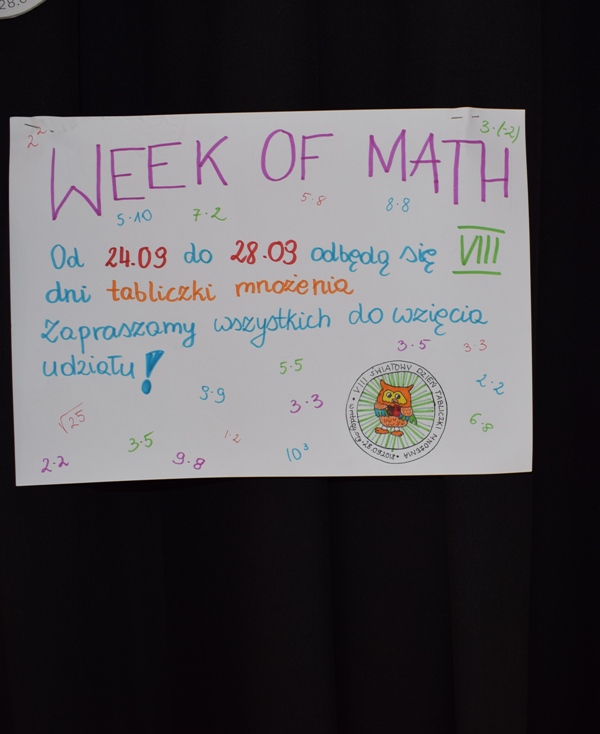 28.0
2².
3·(-2)
WEEK OF MATH
5·10 7·2 5·8 8·8
Od 24.09 do 28.09 odbędą się VIII
dni tabliczki mnożenia
Zapraszamy wszystkich do wzięcia
udziału!
3·5 3·3
5·5
2·2
9·9
3·3
√25
6·8
3·5
1·2
2·2
9·8
10³
VIII ŚWIATOWY DZIEŃ TABLICZKI MNOŻENIA